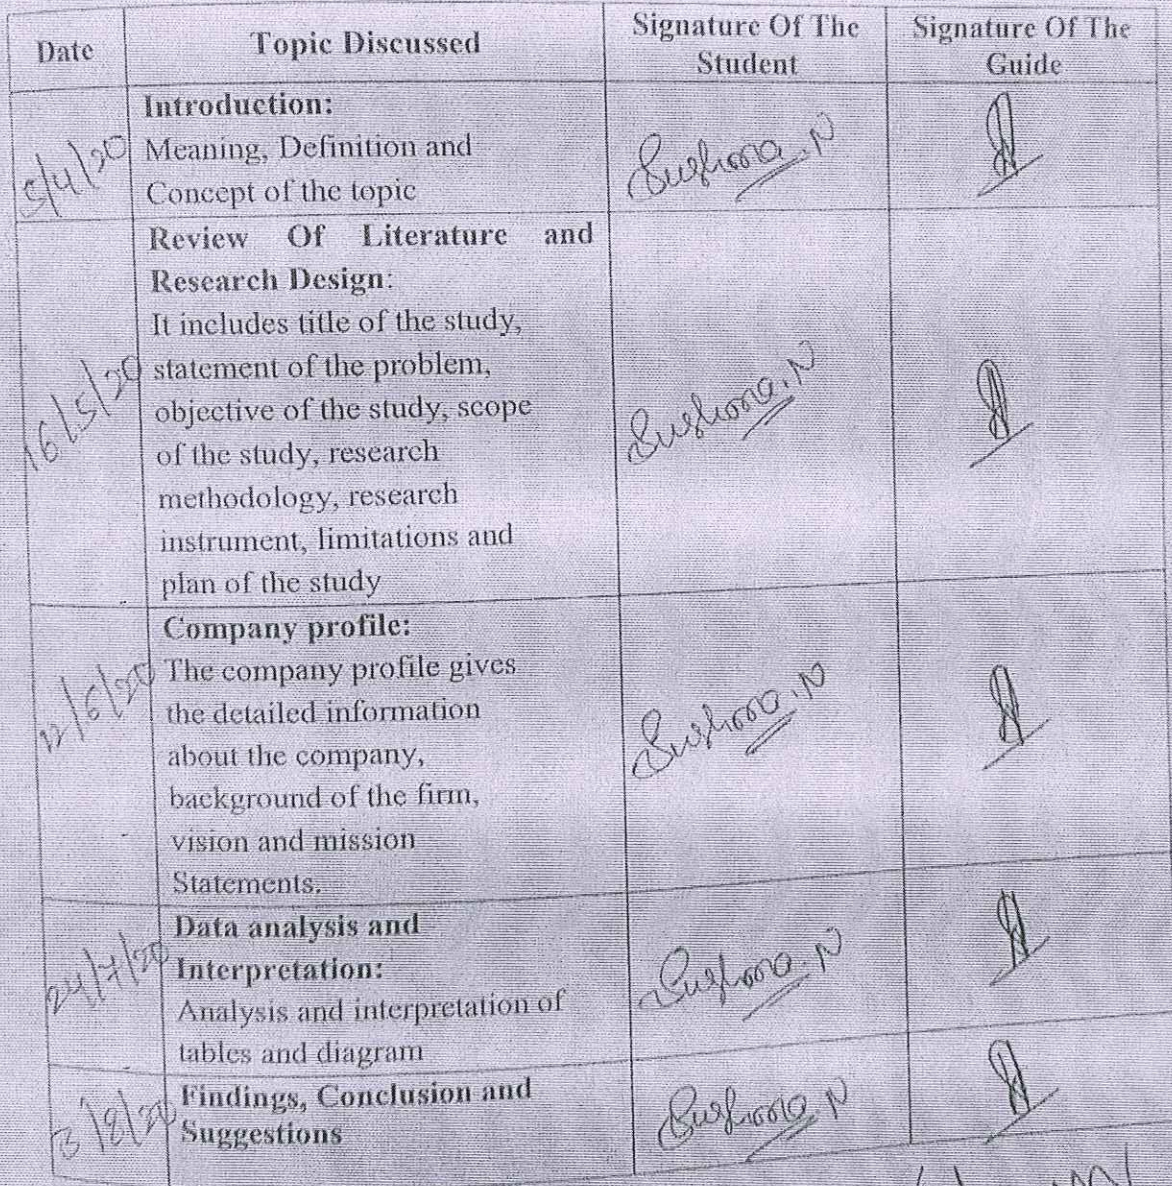 Date
Topic Discussed
Signature Of The
Student
Signature Of The
Guide
5/4/20
Introduction:
Meaning, Definition and
Concept of the topic
Sushma.N
16/5/20
Review Of Literature and
Research Design:
It includes title of the study,
statement of the problem,
objective of the study, scope
of the study, research
methodology, research
instrument, limitations and
plan of the study
Sushma.N
12/6/20
Company profile:
The company profile gives
the detailed information
about the company,
background of the firm,
vision and mission
Statements.
Sushma.N
24/7/20
Data analysis and
Interpretation:
Analysis and interpretation of
tables and diagram
Sushma.N
3/8/20
Findings, Conclusion and
Suggestions
Sushma N